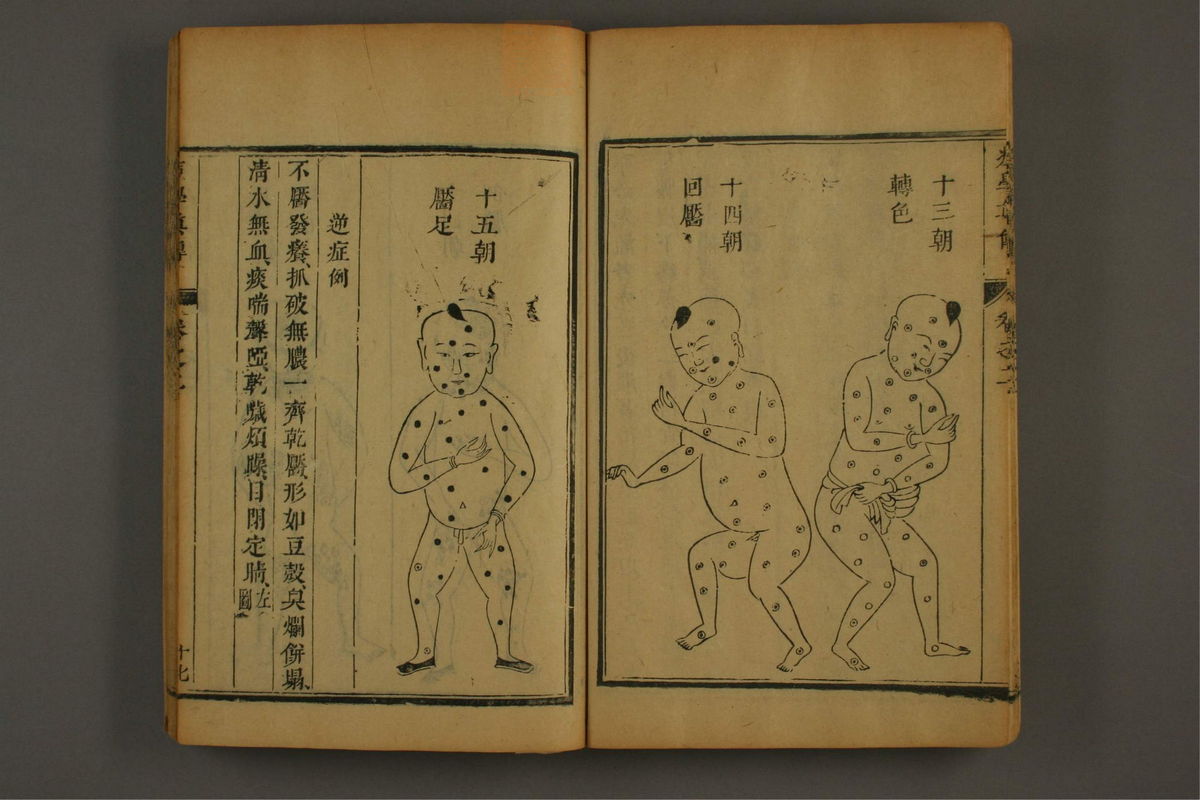 十三朝
轉色
十四朝
回靨
十五朝
靨足
逆症例
不靨發癢、抓破無膿一齊乾靨、形如豆殼、臭爛倂塌、
清水無血、痰喘聲啞、乾嘔煩躁、目閉定睛、左圖
卷之二
十七